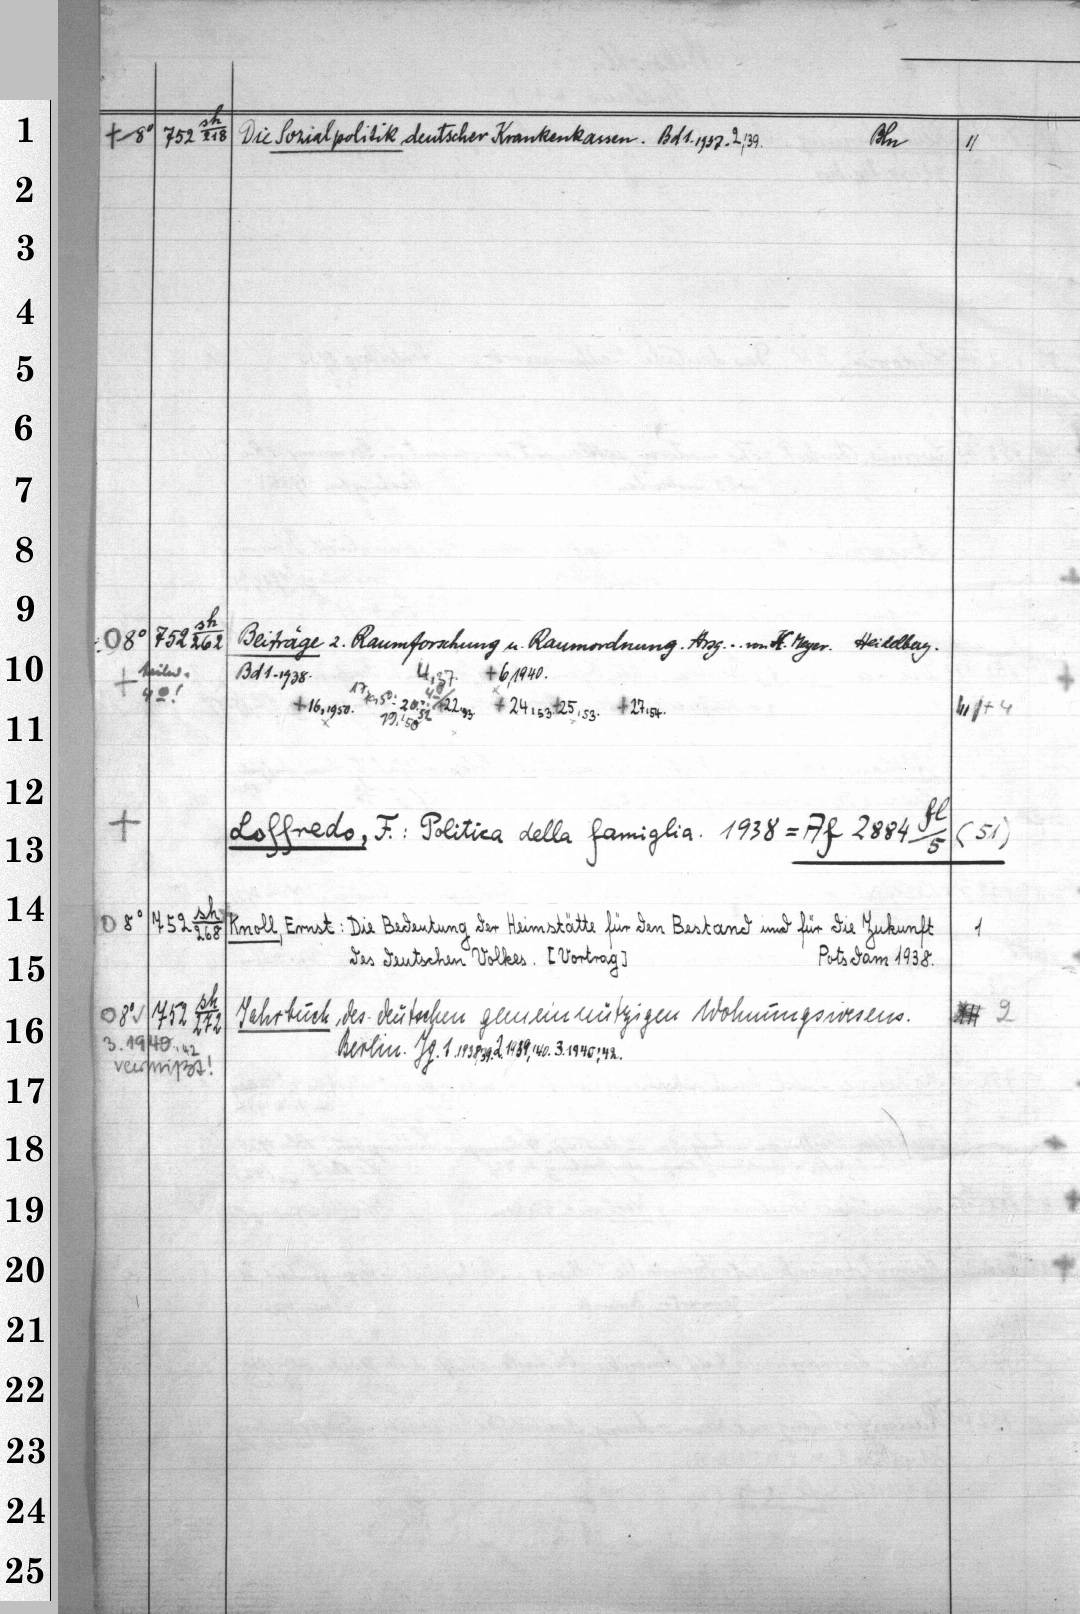 1
+ 8° 752 sh/218 Die Sozialpolitik deutscher Krankenkassen. Bd 1.1937-2,39. Bln 11
2
3
4
5
6
7
8
9
O 8° 752 sh/262 Beiträge z. Raumforschung u. Raumordnung. Hrsg... von K. Meyer. Heidelberg.
10
+ teilw. Bd 1.1938. 4,39. +6,1940.
4°!
+16,1950. 17,50. 20. 52 +22,53 +24,53 +25,53. +27,54. +4
19,50
11
12
+ Loffredo, F.: Politica della famiglia. 1938 = Af 2884 fl/5 (51)
13
14
O 8° 752 sh/268 Knoll, Ernst: Die Bedeutung der Heimstätte für den Bestand und für die Zukunft 1
des deutschen Volkes. [Vortrag] Potsdam 1938.
15
O 8° 752 sh/272 Jahrbuch des deutschen gemeinnützigen Wohnungswesens. 2
16
3.1940,42 Berlin. Jg. 1.1938,39. 2.1939,40. 3.1940,42.
vermißt!
17
18
19
20
21
22
23
24
25